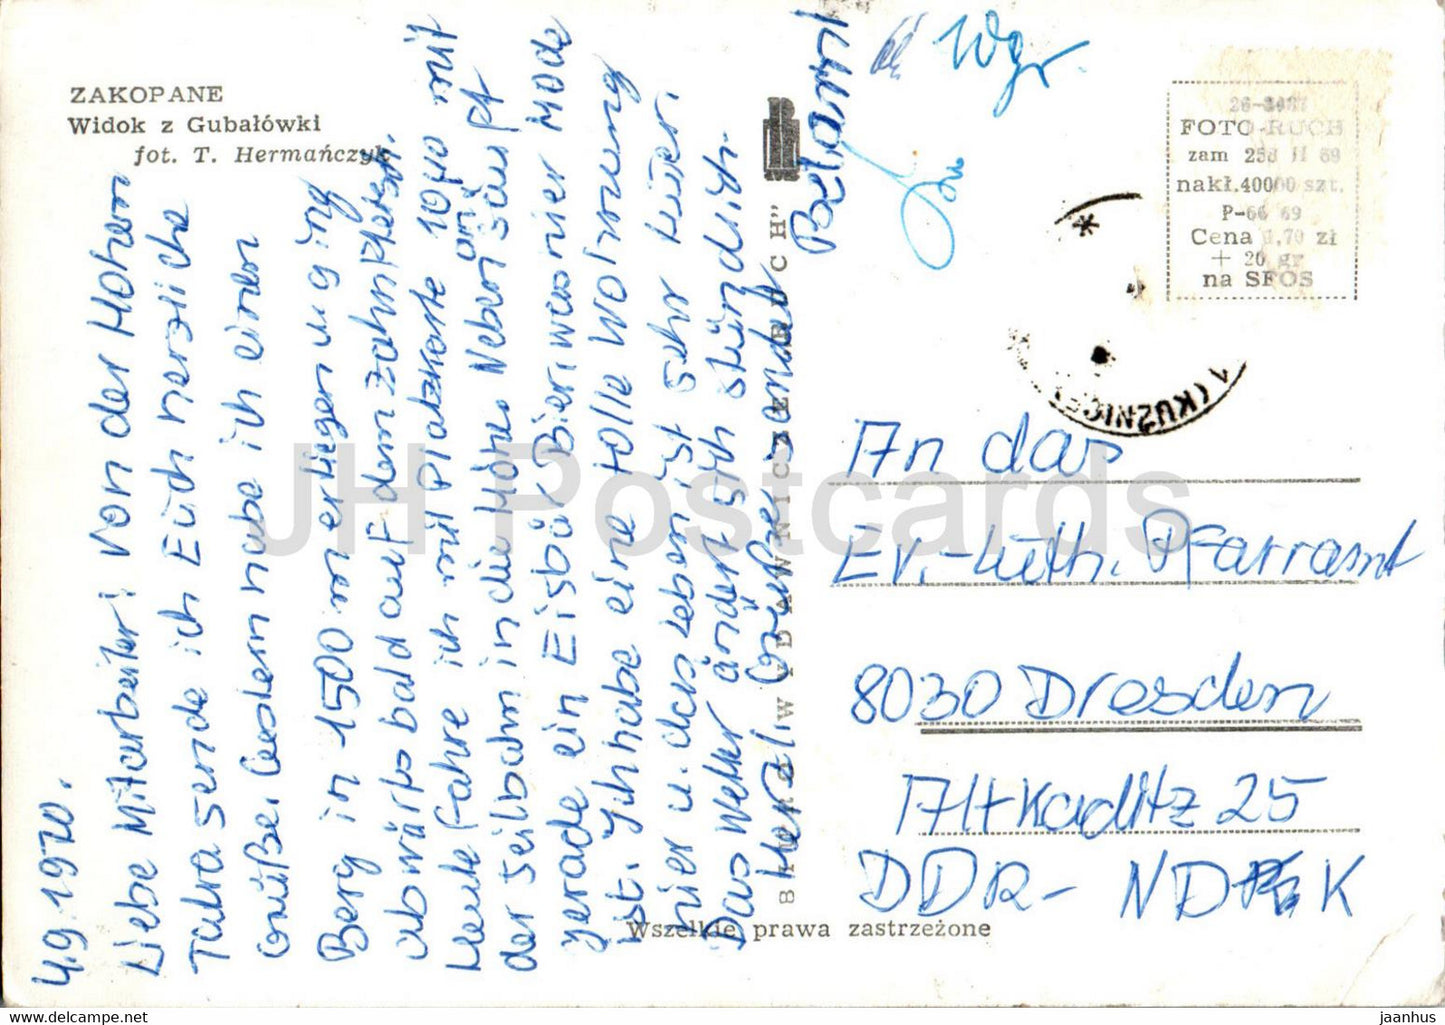 ZAKOPANE
Widok z Gubałówki
fot. T. Hermańczyk
4.9.1970.
Liebe Mitarbeiter! Von der Hohen
Tatra sende ich Euch herzliche
Grüße. Gestern habe ich einen
Berg in 1500 m erstiegen u. ging
abwärts bald auf dem zahnfleisch.
Heute fahre ich mit Platzkarte 10 µ0 mit
der Seilbahn in die Höhe. Nebenan säuft
gerade ein Eisbär Bier, was hier Mode
ist. Ich habe eine tolle Wohnung
hier u. das Leben ist sehr
Das Wetter ändert sich stündlich.
Grüße sendet
BIURO WYDAWNICZE "RUCH"
Wszelkie prawa zastrzeżone
FOTO-RUCH
zam 258 II 69
nakł. 40000 szt.
P-66 69
Cena 1,70 zł
+ 20 gr
na SFOS
KUŹNICE
An das
Ev.-Luth. Pfarramt
8030 Dresden
Altkaditz 25
DDR - NDR K
JH Postcards
jaanhus - delcampe.net